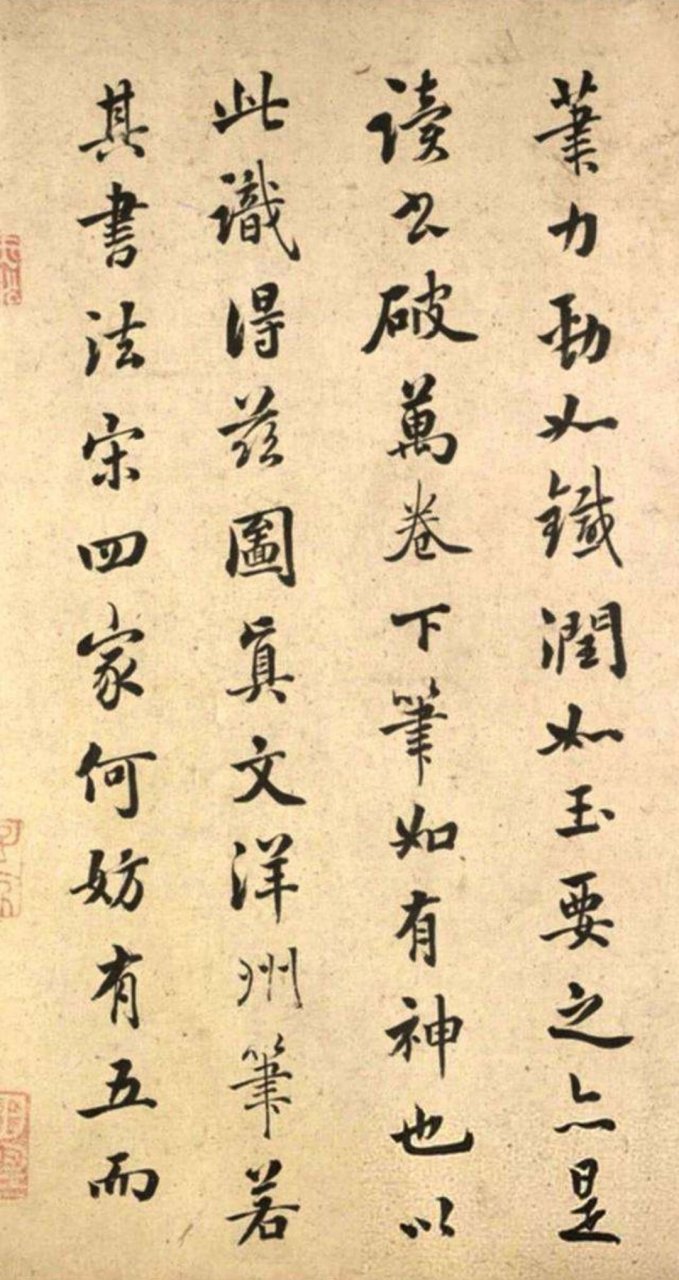 筆力勁如鐵潤如玉要之亦是
读书破萬卷下筆如有神也以
此識得兹圖真文洋州筆若
其書法宋四家何妨有五而